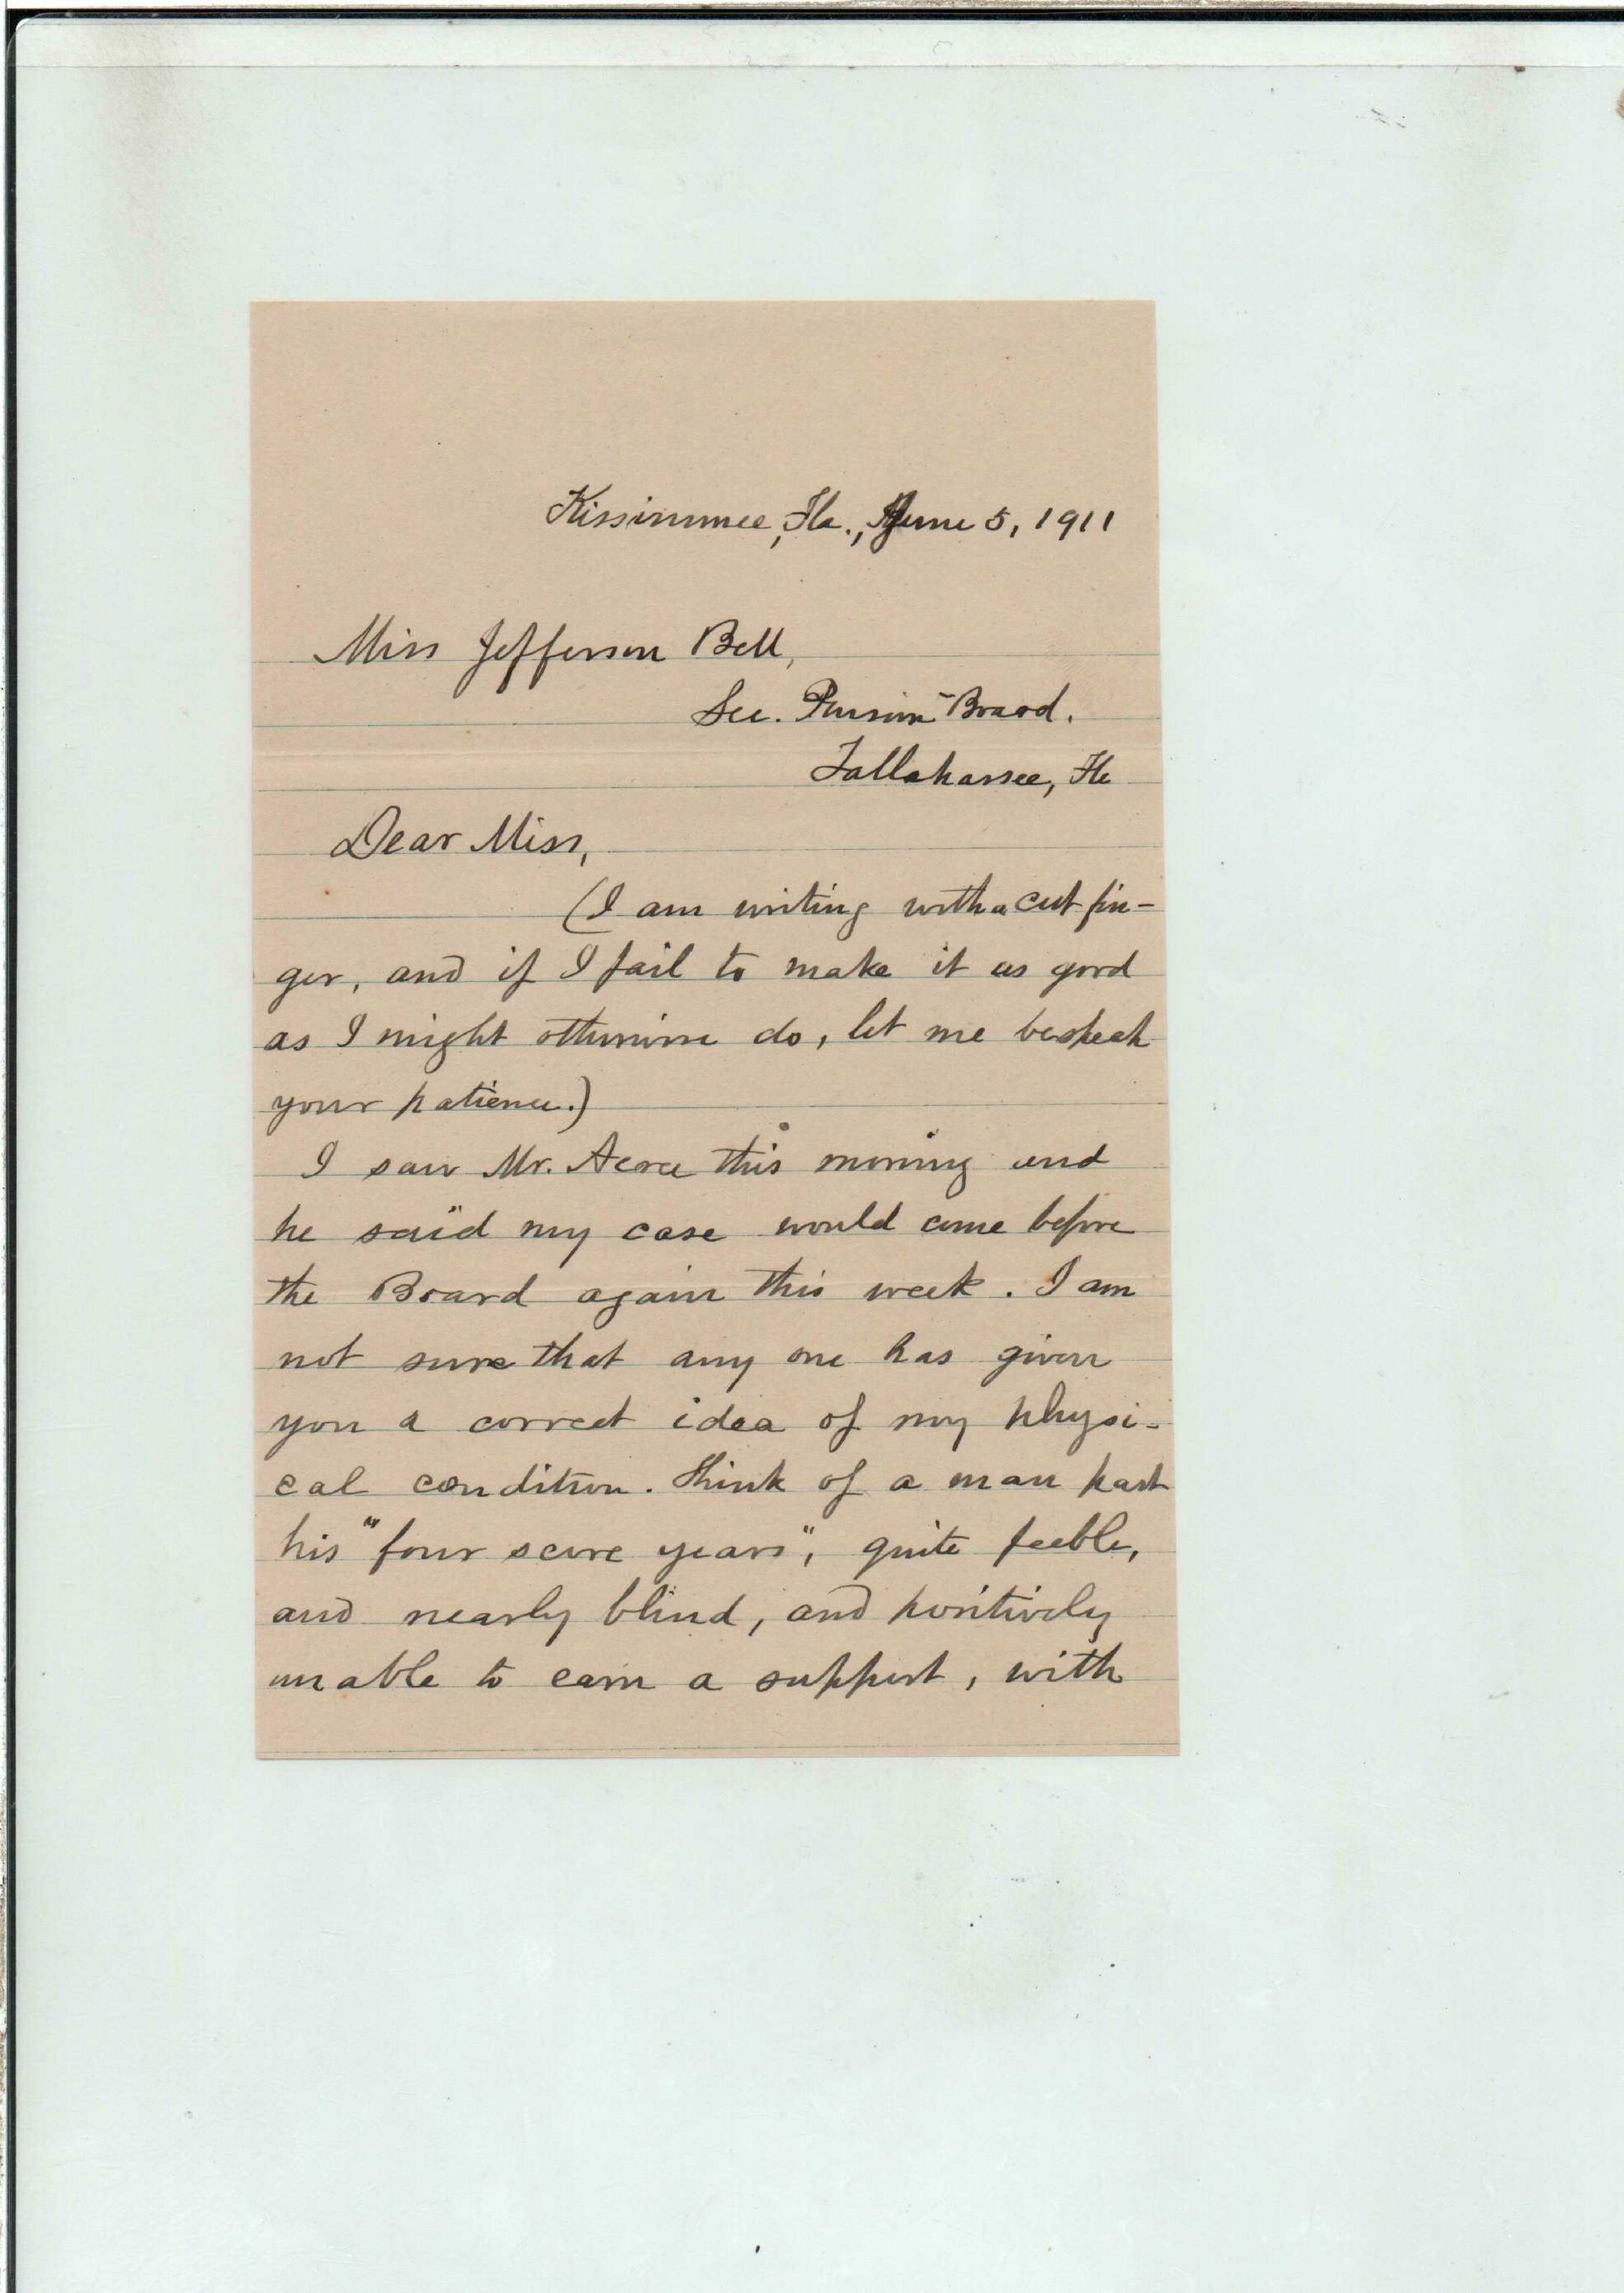 Kissimmee, Fla., June 5, 1911
Miss Jefferson Bell,
Sec. Pension Board.
Tallahassee, Fla
Dear Miss,
(I am writing with a cut fin-
ger, and if I fail to make it as good
as I might otherwise do, let me bespeak
your patience.)
I saw Mr. Acree this morning and
he said my case would come before
the Board again this week. I am
not sure that any one has given
you a correct idea of my physi-
cal condition. Think of a man past
his "four score years", quite feeble,
and nearly blind, and positively
unable to earn a support, with